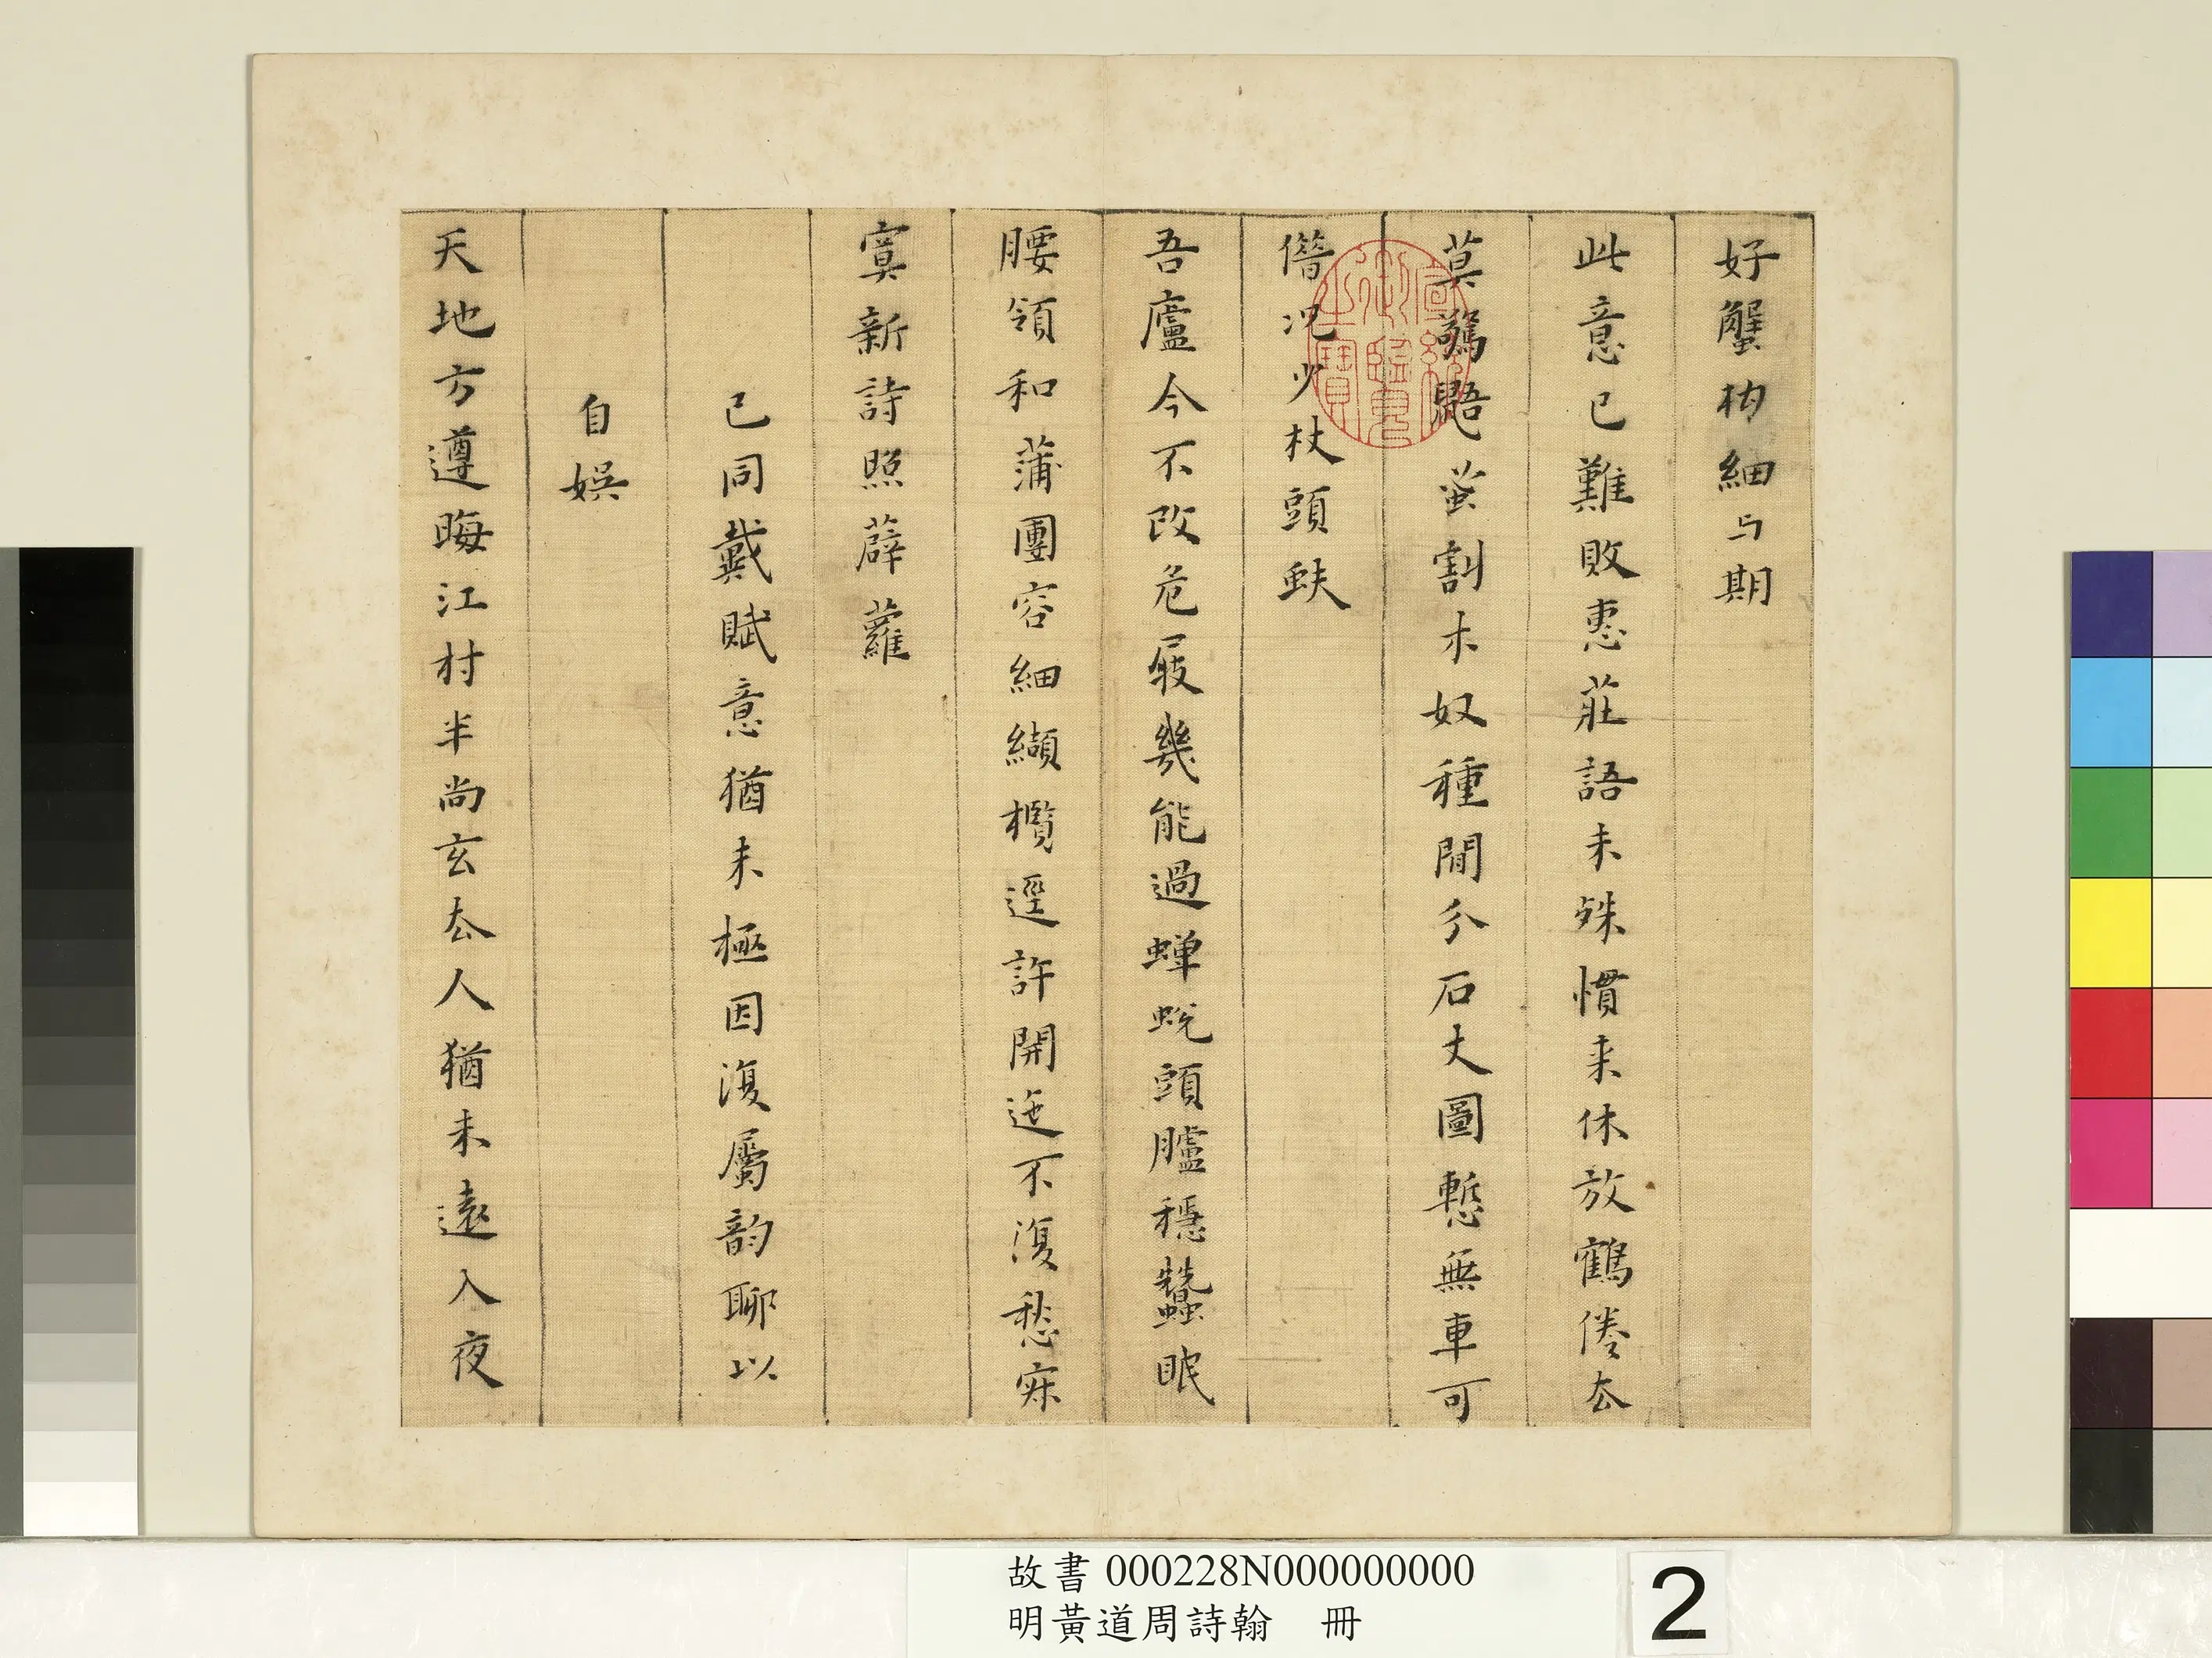 好蟹枘細与期
此意已難敗惠莊語未殊慣来休放鶴倦去
莫驚鼯蚤割木奴種閒分石丈圖慙無車可
僭况少杖頭蚨
吾廬今不改危屐幾能過蟬蛻頭臚穩蠶眠
腰領和蒲團容細纈欖逕許開迤不復愁寂
寞新詩照薜蘿
已同戴賦意猶未極因復屬韵聊以
自娛
天地方遵晦江村半尚玄去人猶未遠入夜
宣統御覽之寶
故書 000228N000000000
明黃道周詩翰 冊
2